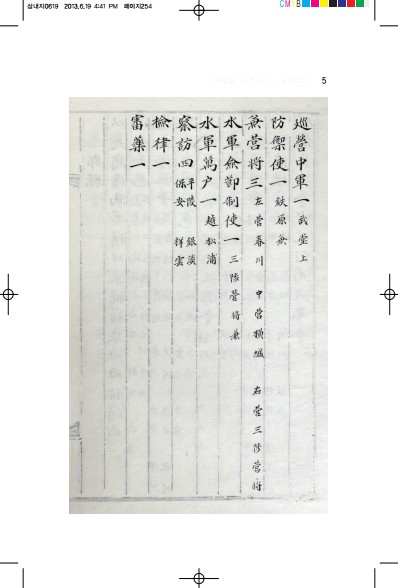 삼내지0619 2013.6.19 4:41 PM 페이지254
5
廵營中軍一 武堂上
防禦使一 鉄原兼
兼營將三 左營春川 中營橫城 右營三陟營將
水軍僉節制使一 三陟營將兼
水軍萬户一 越松浦
察訪四 平陵 銀溪
保安 祥雲
檢律一
審藥一